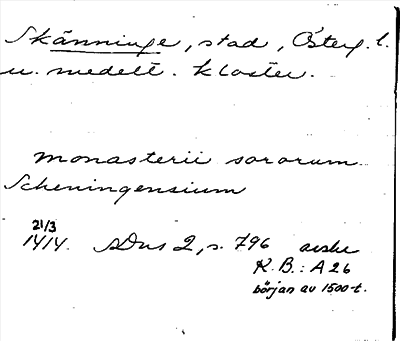 Skänninge, stad, Österg. l.
u. medelt. kloster.
monasterii sororum
Scheningensium
21/3
1414. SDns 2, s. 796 avskr
K.B.: A 26
början av 1500-t.